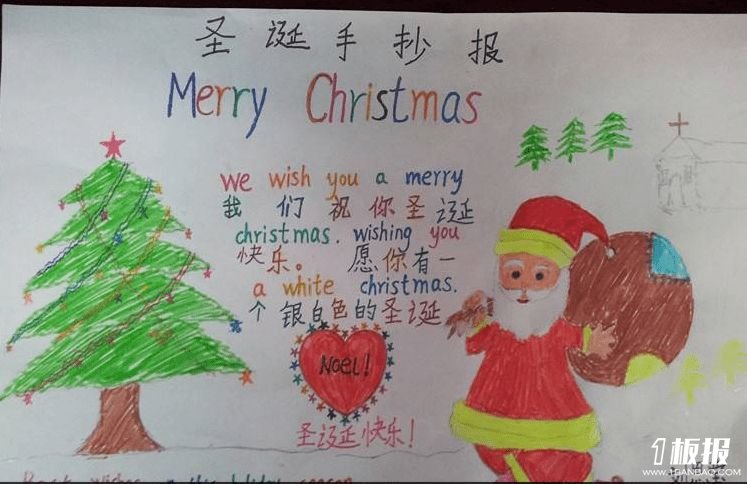 圣诞手抄报
Merry Christmas
we wish you a merry
我们祝你圣诞
christmas. wishing you
快乐。 愿你有一
a white christmas.
个银白色的圣诞
Noel!
圣诞快乐!
1板报
WWW.1BANBAO.COM